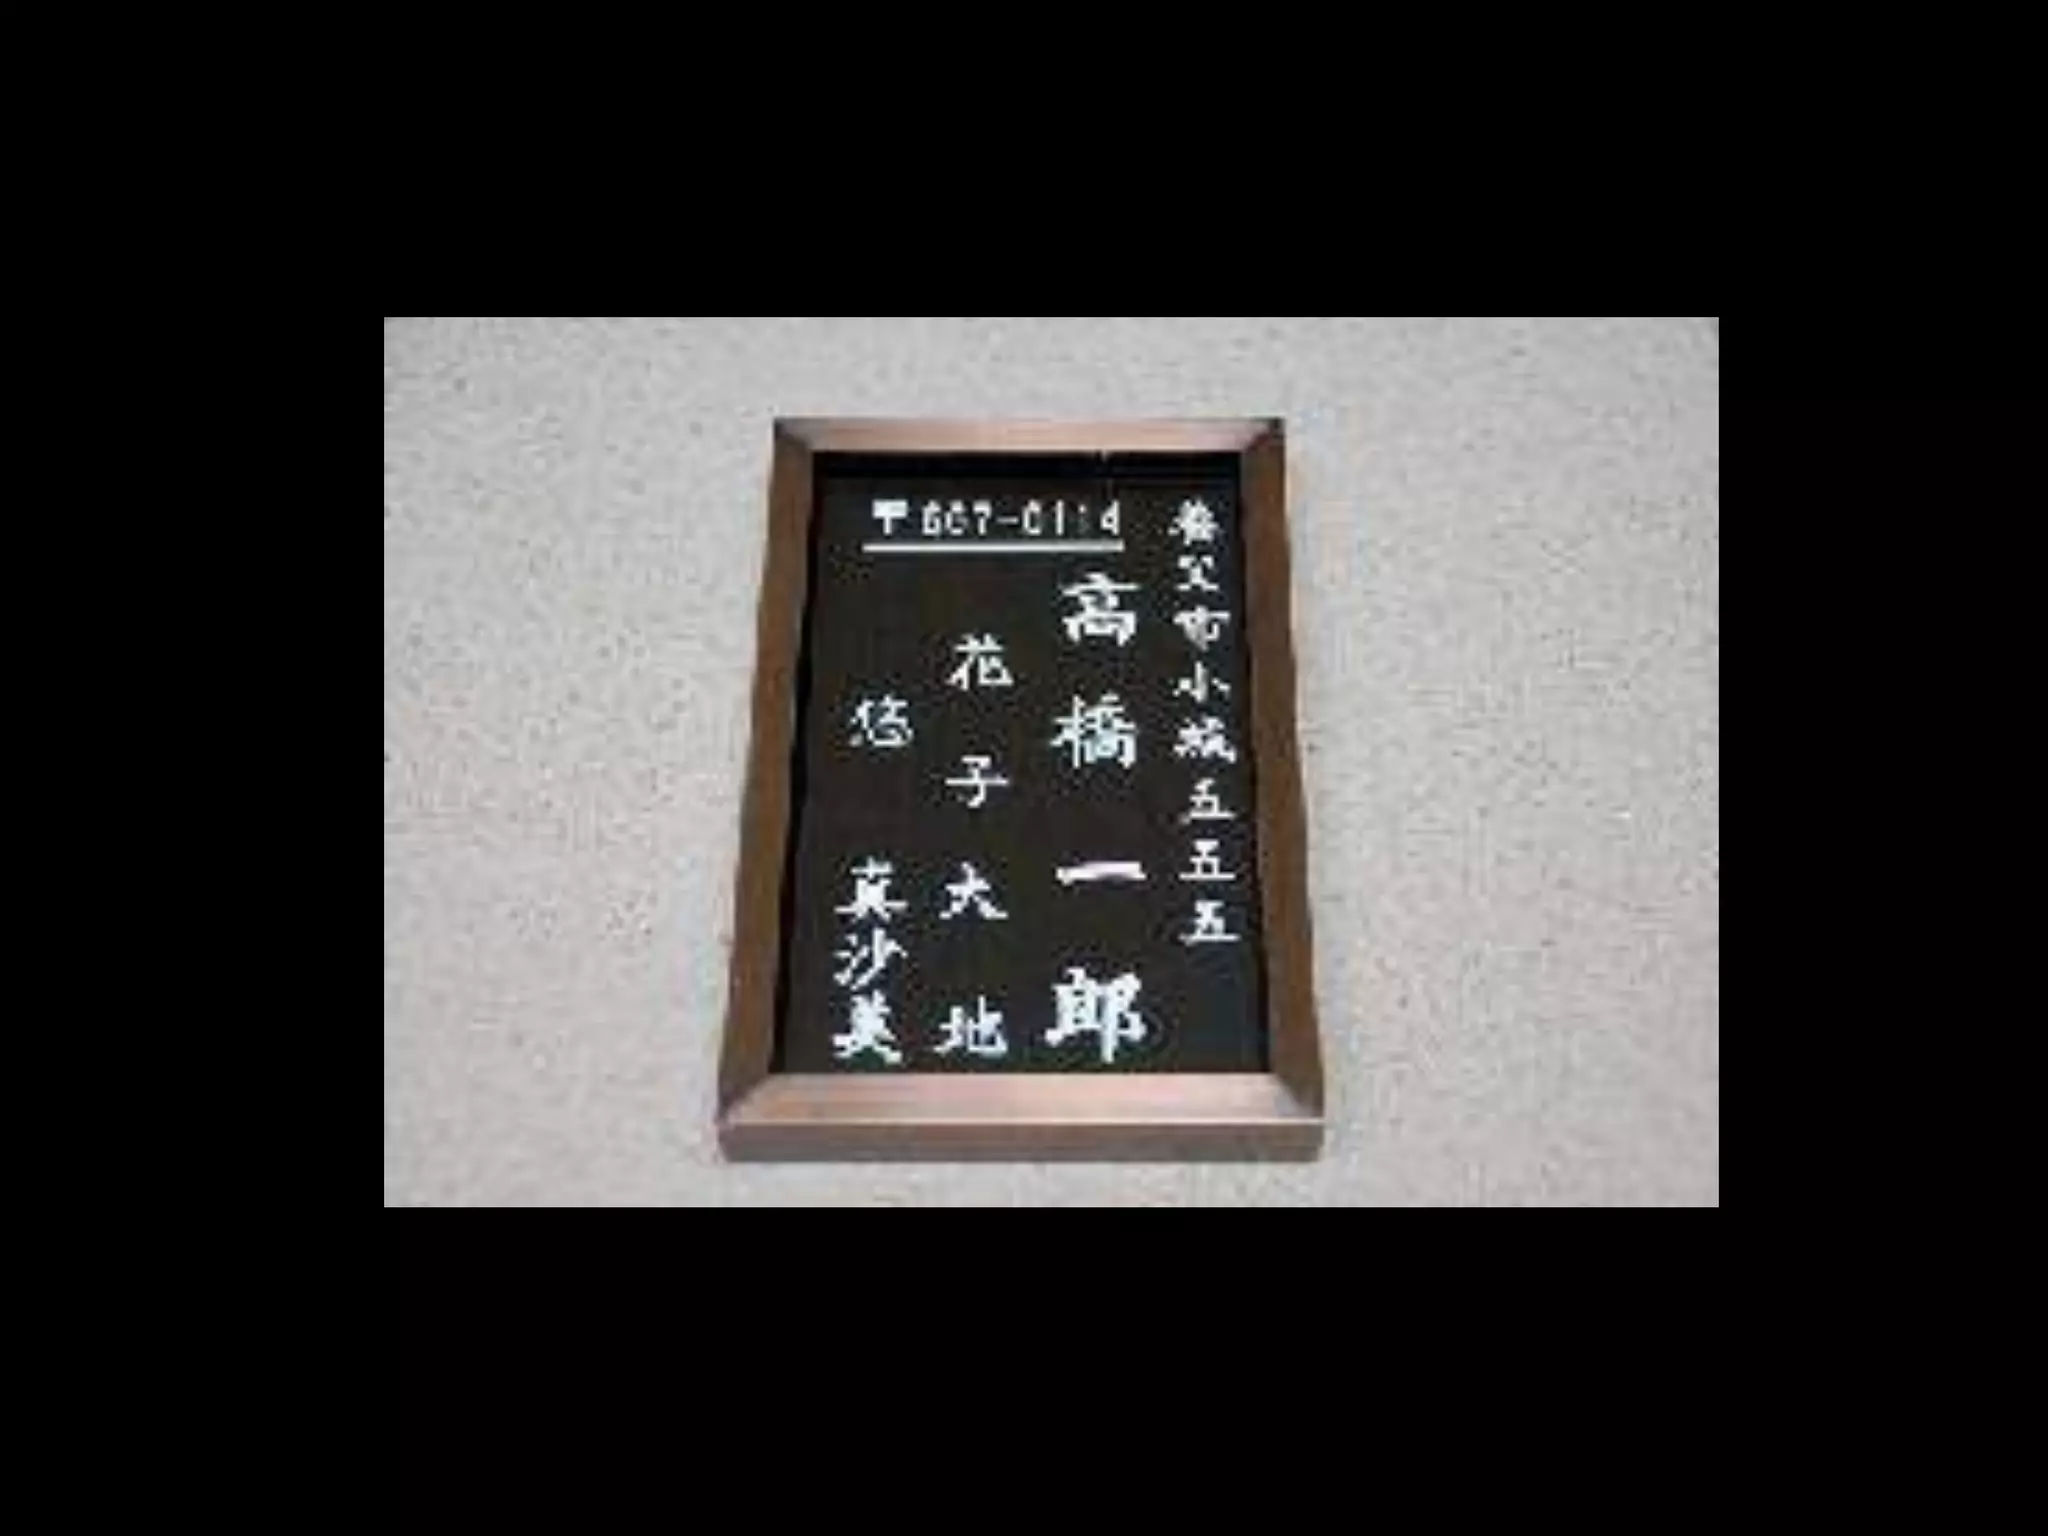 〒667-0114
養父市小城五五五
高橋一郎
花子 大地
悠 真沙美